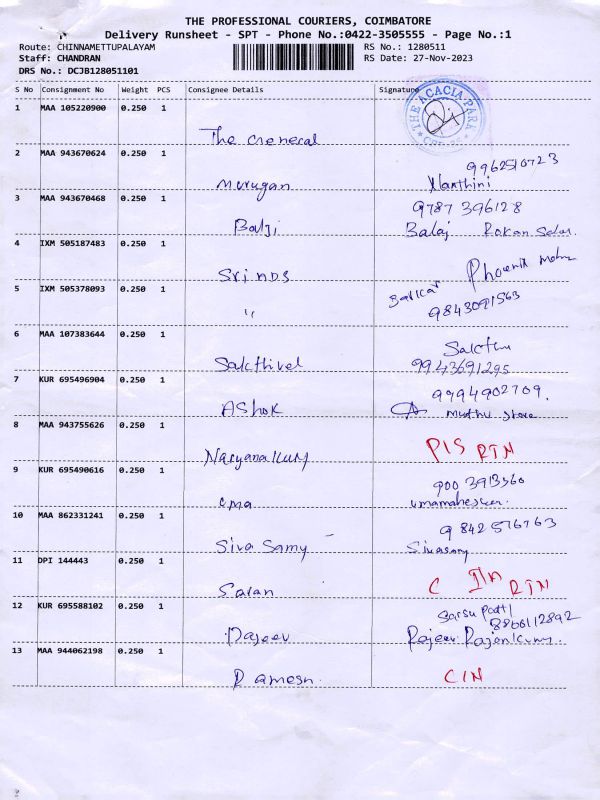 THE PROFESSIONAL COURIERS, COIMBATORE
Delivery Runsheet - SPT - Phone No.:0422-3505555 - Page No.:1
Route: CHINNAMETTUPALAYAM RS No.: 1280511
Staff: CHANDRAN RS Date: 27-Nov-2023
DRS No.: DCJB128051101
S No Consignment No Weight PCS Consignee Details Signature
1 MAA 105220900 0.250 1 THE ACACIA PARK
The
2 MAA 943670624 0.250 1 9962510723
Murugan Nanthini
3 MAA 943670468 0.250 1 9787 396128
Balaji Balaj
4 IXM 505187483 0.250 1 Phoenix
Sri NDS
5 IXM 505378093 0.250 1 9843091563
"
6 MAA 107383644 0.250 1
Sakthivel 9943691295
7 KUR 695496904 0.250 1 9994902709.
Ashok Muthu Store
8 MAA 943755626 0.250 1 PIS RTN
9 KUR 695490616 0.250 1 900 3913560
Uma Umamaheswari.
10 MAA 862331241 0.250 1 9842576763
Siva Samy Sivasamy
11 DPI 144443 0.250 1 C RTN
Saran
12 KUR 695588102 0.250 1 8866112892
Rajeev Rajeev
13 MAA 944062198 0.250 1 CIN
Ramesh.